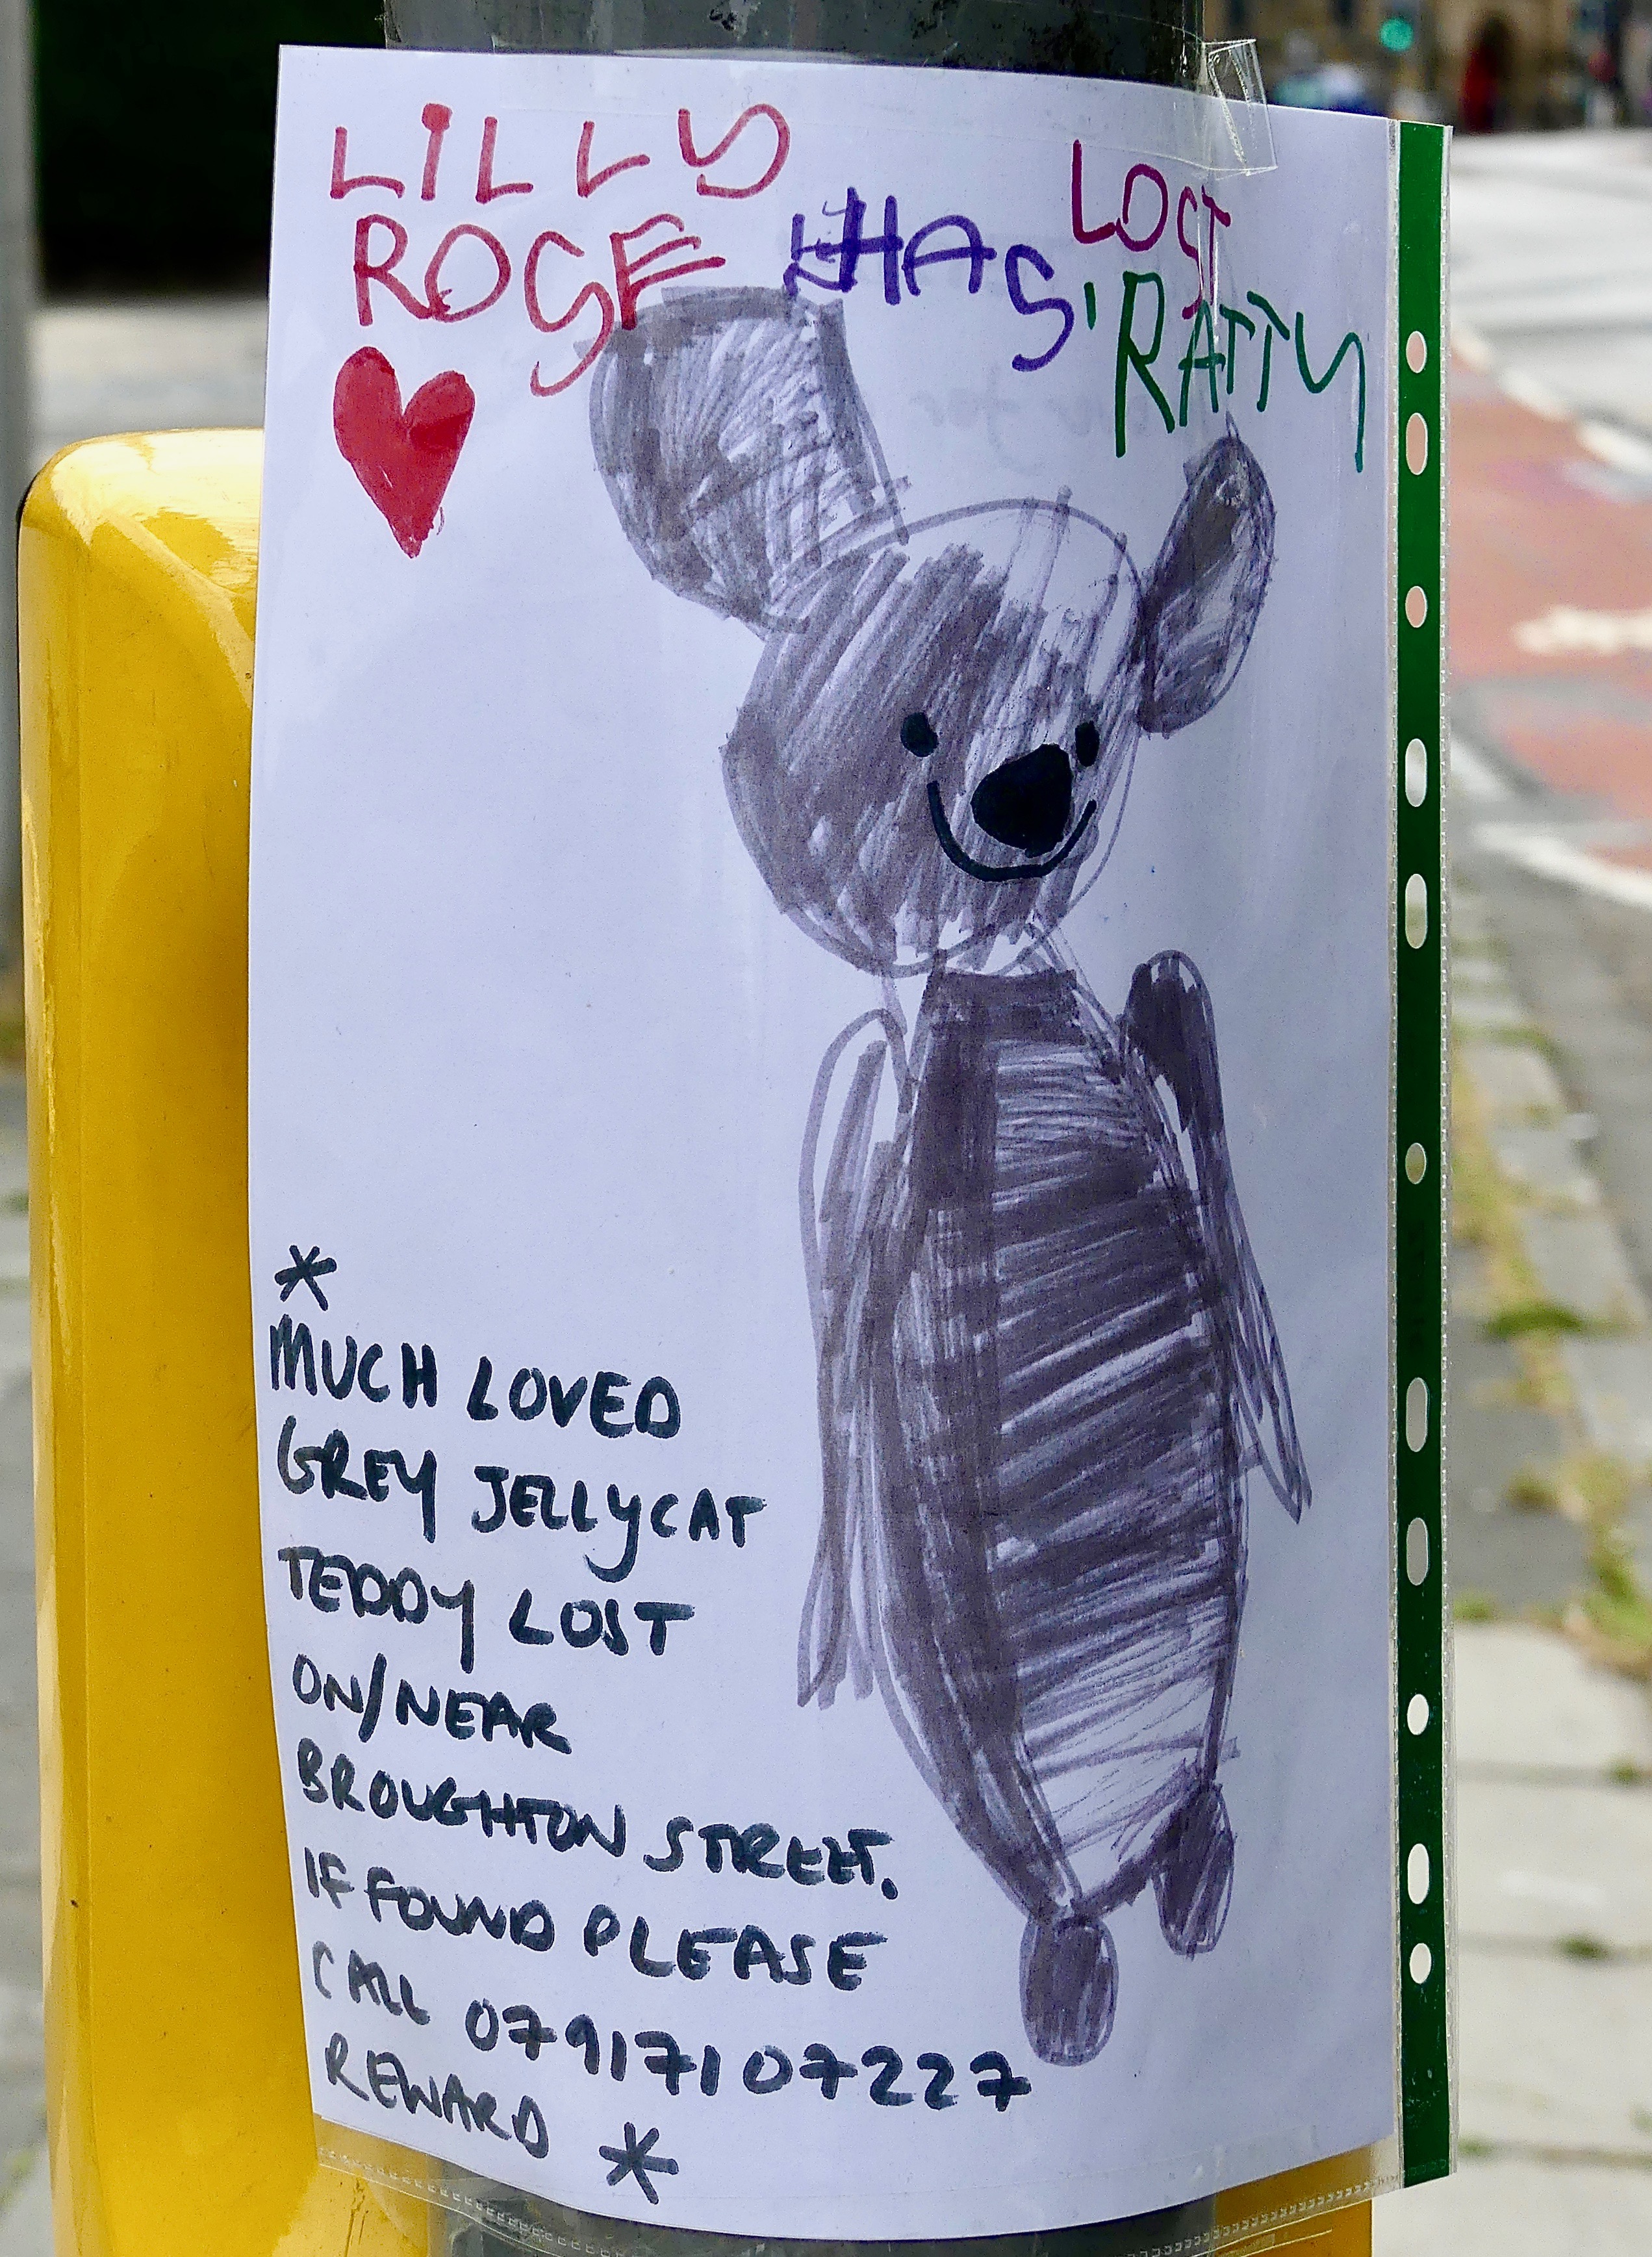 LILLY
ROSE HAS LOST
'RATTY
*
MUCH LOVED
GREY JELLYCAT
TEDDY LOST
ON/NEAR
BROUGHTON STREET.
IF FOUND PLEASE
CALL 07917107227
REWARD *